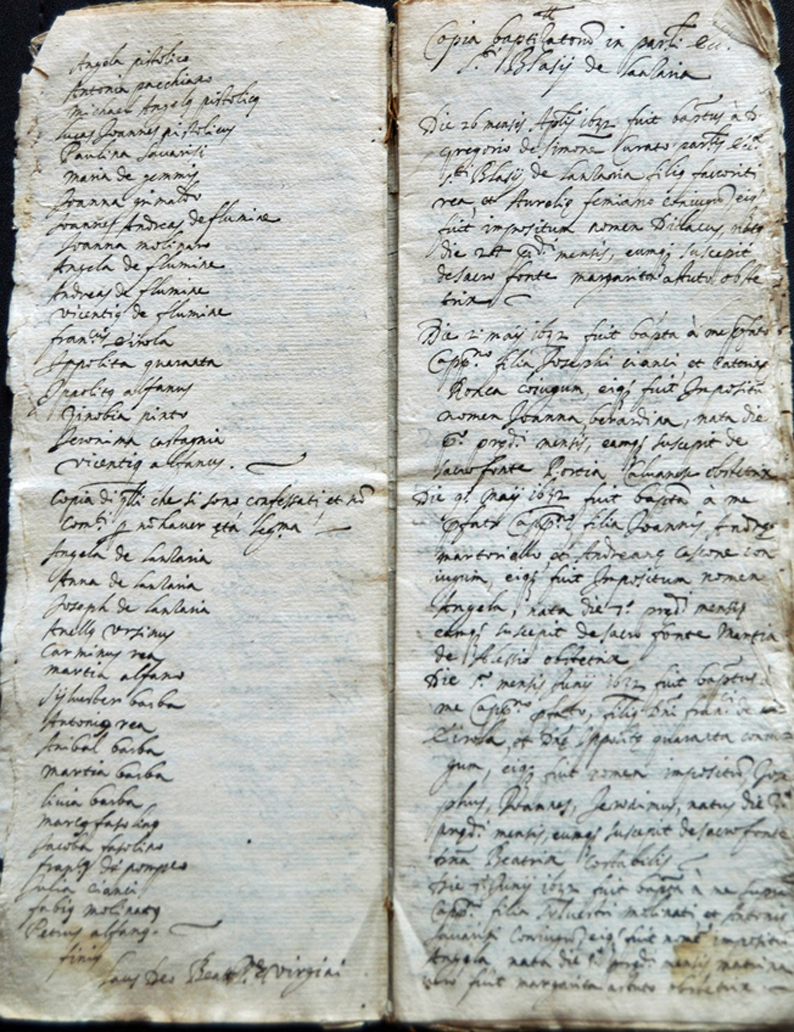 Angela pistolico
Antonia pacchiano
Michael Angelo pistolicq
lucas Joannes pistolicus
Paulina Savarisi
maria de gemmis
Joanna grimaldo
Joannes Andreas de flumine
Joanna molinaro
Angela de flumine
Andreas de flumine
vicentiq de flumine
fran.cus Cirola
Ippolita quaranta
Ippolitq alfanus
Zinobia pinto
Jeronima castagnia
vicentiq alfanus.
Copia di qlli che si sono confessati et nõ
Com.ti p nõ haver età leg.ma
Angela de santaria
Anna de santaria
Joseph de santaria
Anellq ursinus
Carminus rea
martia alfano
Sylvester barba
Antoniq rea
Anibal barba
martia barba
livia barba
marcq fasolinq
Jacoba fasolino
de pompeo
Julia Cianci
fabiq molinatq
Petrus alfanq.
finis
laus Deo Beat. Virgini
Copia baptizatorũ in par.li Ecc.
S.ti Blasij de santaria
Die 26 mensis Aplis 1632 fuit baptus à D.
gregorio de simone Curato par.lis Ecc.
S.ti Blasij de santaria filiq
rea, et Aureliq femiano coniugũ eiq
fuit impositum nomen Didacus, natq
die 24 mensis, eumq suscepit
de sacro fonte margarita astuto obste
trix
Die 2 maij 1632 fuit bapta à me pfato
Capp.no filia Josephi cianci, et
Ronca coiugum, eiq fuit Impositũ
nomen Joanna berardina, nata die
p.o predi mensis, eamq suscepit de
sacro fonte Portia obstetrix
Die 9 maij 1632 fuit bapta à me
pfato Capp.no filia Joannis Andreq
martoriello, et Andreana Cascone con
iugum, eiq fuit Impositum nomen
Angela, nata die 7.o predi mensis
eamq suscepit de sacro fonte Martia
de Alessio obstetrix
Die mensis Junij 1632 fuit baptus
me Capp.no pfato, filiq Dni
Cirola, et Dnę Ippolitę quaranta coniu
gum, eiq fuit nomen impositũ, Jose
phus, Joannes, Jeronimus, natus die
predi mensis, eumq suscepit de sacro fonte
Dña Beatrix Costabilis
Die Junij 1632 fuit bapta à me supra
Capp.no filia Sylvestri molinati et Antonię
Savarisi Coniugũ, eiq fuit nomẽ impositũ
Angela nata die predi mensis matrina
fuit margarita astuto obstetrix